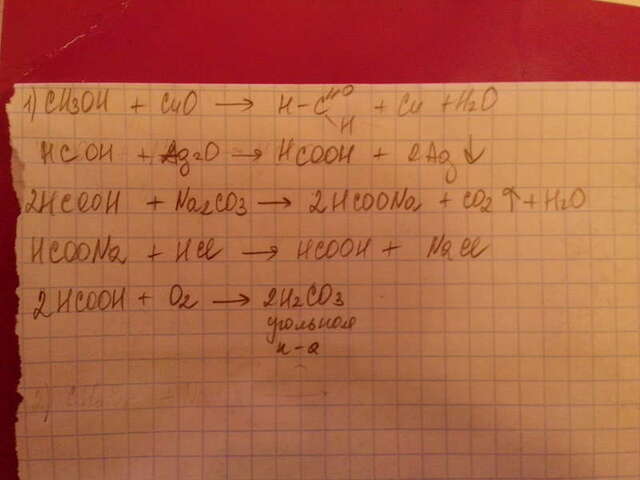 1) CH3OH + CuO → H-C=O H + Cu + H2O
HCOH + Ag2O → HCOOH + 2Ag↓
2HCOOH + Na2CO3 → 2HCOONa + CO2↑ + H2O
HCOONa + HCl → HCOOH + NaCl
2HCOOH + O2 → 2H2CO3
угольная
к-а
2)